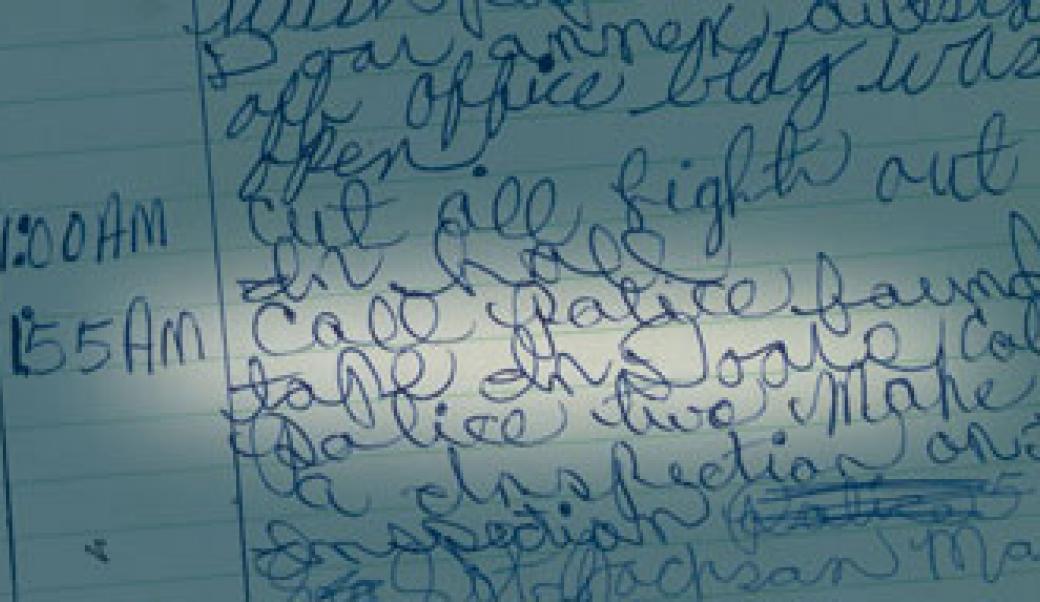 Doar annex, outsid
off office bldg was
open.
1:00 AM Cut all light out
In hall
1:55 AM Call police found
tape In Doare, Cal
Police two Make
a Inspection
Inspection
Jackson Ma